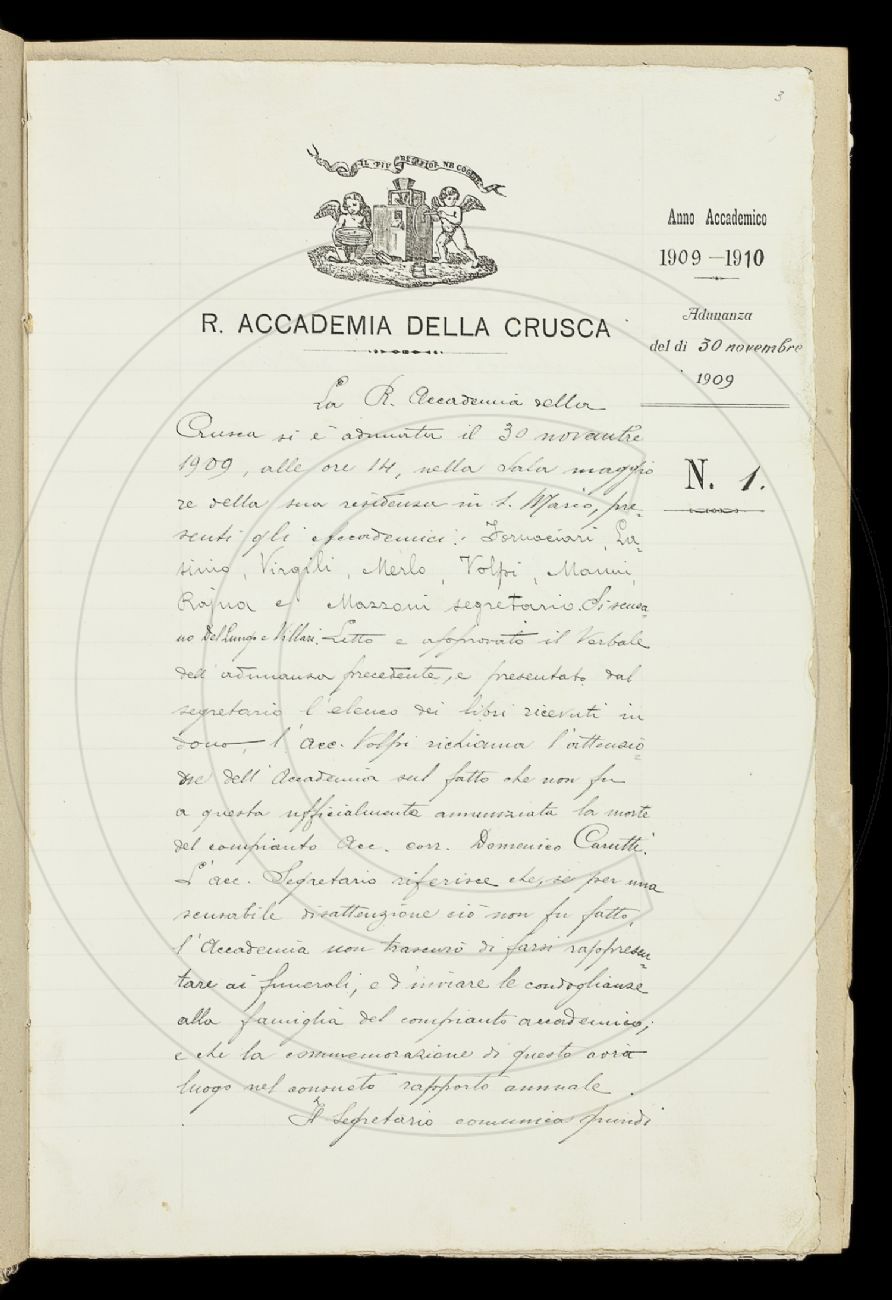 3
IL PIV BEL FIOR NE COGLIE
Anno Accademico
1909-1910
R. ACCADEMIA DELLA CRUSCA
Adunanza
del dì 30 novembre
1909
N. 1.
La R. Accademia della
Crusca si è adunata il 30 novembre
1909, alle ore 14, nella Sala maggio
re della sua residenza in S. Marco, pre-
senti gli Accademici: Fornaciari, La-
sinio, Virgili, Merlo, Volpi, Manni,
Rajna e Mazzoni segretario. Si scusa-
no Del Lungo e Villari. Letto e approvato il Verbale
dell'adunanza precedente, e presentato dal
segretario l'elenco dei libri ricevuti in
dono, l'Acc. Volpi richiama l'attenzio-
ne dell'Accademia sul fatto che non fu
a questa ufficialmente annunziata la morte
del compianto Acc. corr. Domenico Carutti.
L'acc. Segretario riferisce che, se per una
scusabile disattenzione ciò non fu fatto,
l'Accademia non trascurò di farsi rappresen-
tare ai funerali, e d'inviare le condoglianze
alla famiglia del compianto accademico;
e che la commemorazione di questo avrà
luogo nel consueto rapporto annuale.
Il Segretario comunica quindi